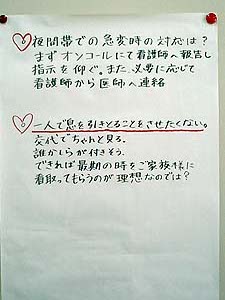 夜間帯での急変時の対応は？
まずオンコールにて看護師へ報告し
指示を仰ぐ。また、必要に応じて
看護師から医師へ連絡
一人で息を引きとることをさせたくない。
交代でちゃんと見る。
誰かしらが付きそう。
できれば最期の時をご家族様に
看取ってもらうのが理想なのでは？